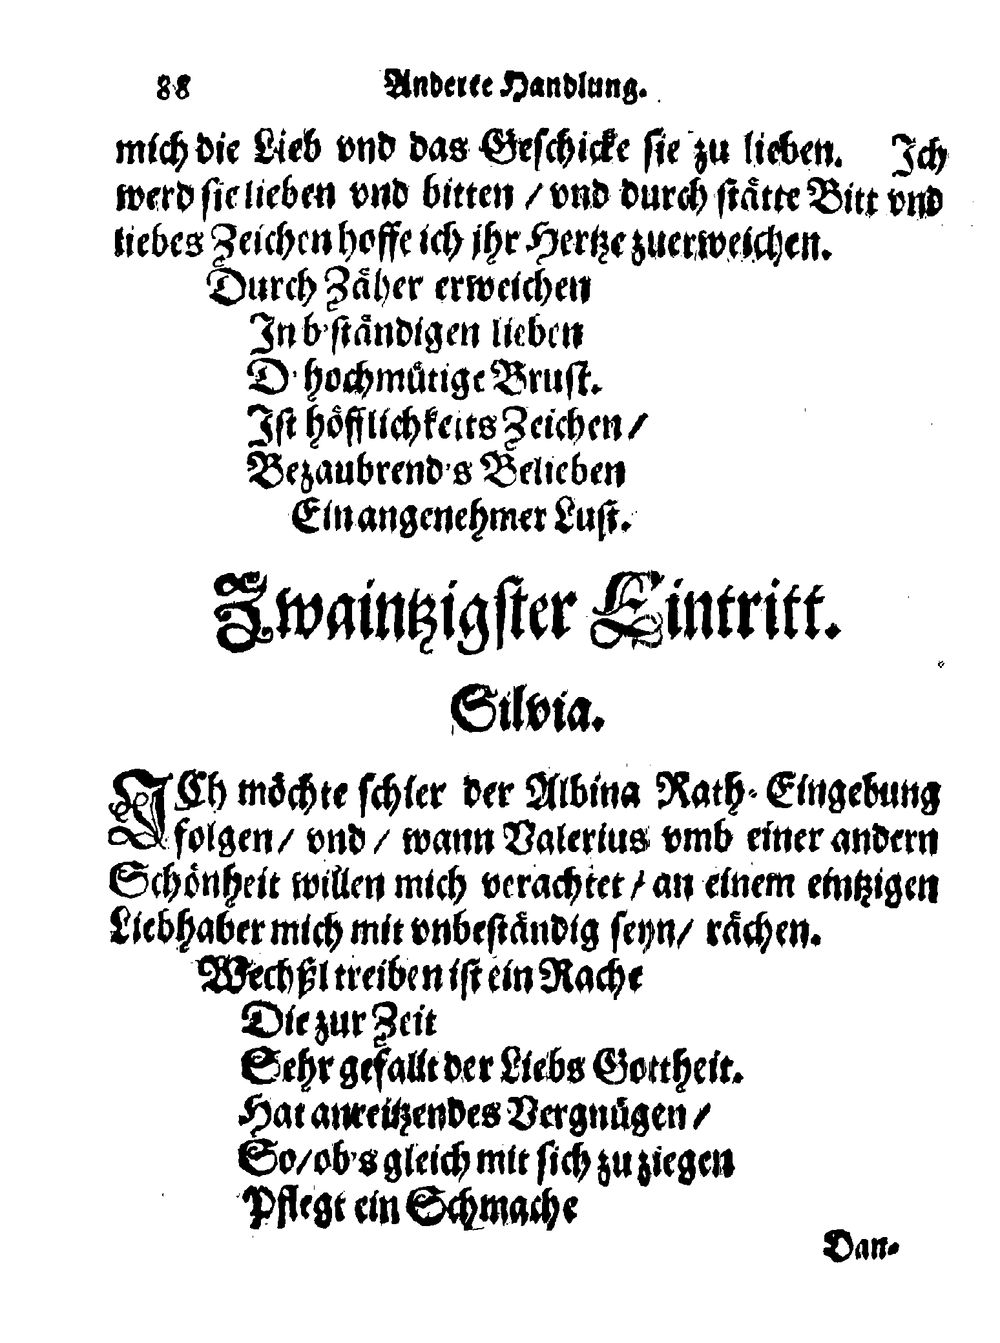 88 Anderte Handlung.
mich die Lieb vnd das Geschicke sie zu lieben. Ich
werd sie lieben vnd bitten / vnd durch stätte Bitt vnd
liebes Zeichen hoffe ich jhr Hertze zuerweichen.
Durch Zäher erweichen
In b'ständigen lieben
D' hochmütige Brust.
Ist höfflichkeits Zeichen /
Bezaubrend's Belieben
Ein angenehmer Lust.
Zwaintzigster Eintritt.
Silvia.
ICh möchte schier der Albina Rath-Eingebung
folgen / vnd / wann Valerius vmb einer andern
Schönheit willen mich verachtet / an einem eintzigen
Liebhaber mich mit vnbeständig seyn / rächen.
Wechßl treiben ist ein Rache
Die zur Zeit
Sehr gefallt der Liebs Gottheit.
Hat anreitzendes Vergnügen /
So / ob's gleich mit sich zu ziegen
Pflegt ein Schmache
Dan-